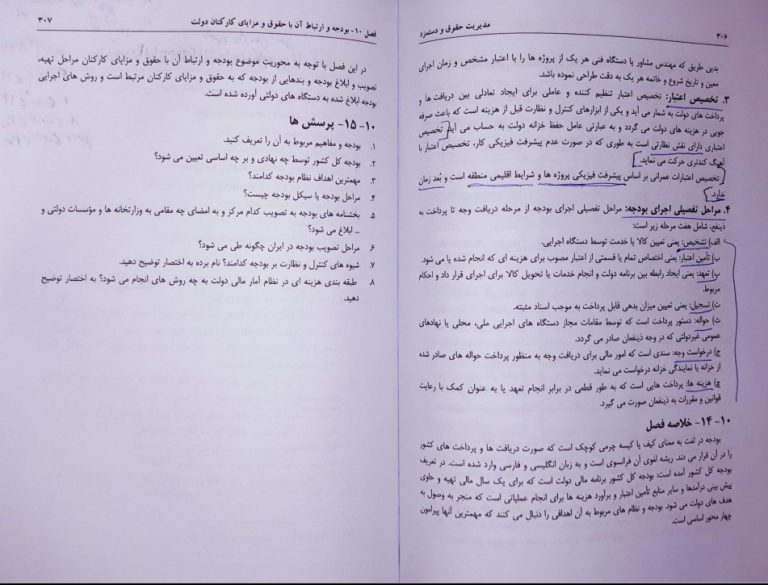 ۳۰۶
مدیریت حقوق و دستمزد
بدین طریق که مهندس مشاور یا دستگاه فنی هر یک از پروژه ها را با اعتبار مشخص و زمان اجرای
معین و تاریخ شروع و خاتمه هر یک به دقت طراحی نموده باشد.
۳. تخصیص اعتبار: تخصیص اعتبار تنظیم کننده و عاملی برای ایجاد تعادلی بین دریافت ها و
پرداخت های دولت به شمار می آید و یکی از ابزارهای کنترل و نظارت قبل از هزینه است که باعث صرفه
جویی در هزینه های دولت می گردد و به عبارتی عامل حفظ خزانه دولت به حساب می آید. تخصیص
اعتباری دارای نقش نظارتی است به طوری که در صورت عدم پیشرفت فیزیکی کار، تخصیص اعتبار با
آهنگ کندتری حرکت می نماید.
تخصیص اعتبارات عمرانی بر اساس پیشرفت فیزیکی پروژه ها و شرایط اقلیمی منطقه است و بُعد زمان
ندارد.
۴. مراحل تفصیلی اجرای بودجه: مراحل تفصیلی اجرای بودجه از مرحله دریافت وجه تا پرداخت به
ذینفع، شامل هفت مرحله زیر است:
الف) تشخیص: یعنی تعیین کالا یا خدمت توسط دستگاه اجرایی.
ب) تأمین اعتبار: یعنی اختصاص تمام یا قسمتی از اعتبار مصوب برای هزینه ای که انجام شده یا می شود.
پ) تعهد: یعنی ایجاد رابطه بین برنامه دولت و انجام خدمات یا تحویل کالا برای اجرای قرار داد و احکام
مربوط.
ت) تسجیل: یعنی تعیین میزان بدهی قابل پرداخت به موجب اسناد مثبته.
ث) حواله: دستور پرداخت است که توسط مقامات مجاز دستگاه های اجرایی ملی، محلی یا نهادهای
عمومی غیردولتی که در وجه ذینفعان صادر می گردد.
ج) درخواست وجه: سندی است که امور مالی برای دریافت وجه به منظور پرداخت حواله های صادر شده
از خزانه یا نمایندگی خزانه درخواست می نماید.
چ) هزینه ها: پرداخت هایی است که به طور قطعی در برابر انجام تعهد یا به عنوان کمک با رعایت
قوانین و مقررات به ذینفعان صورت می گیرد.
۱۰- ۱۴- خلاصه فصل
بودجه در لغت به معنای کیف یا کیسه چرمی کوچک است که صورت دریافت ها و پرداخت های کشور
را در آن قرار می دند. ریشه لغوی آن فرانسوی است و به زبان انگلیسی و فارسی وارد شده است. در تعریف
بودجه کل کشور آمده است: بودجه کل کشور برنامه مالی دولت است که برای یک سال مالی تهیه و حاوی
پیش بینی درآمدها و سایر منابع تأمین اعتبار و برآورد هزینه ها برای انجام عملیاتی است که منجر به وصول به
هدف های دولت می شود. بودجه و نظام های مربوط به آن اهدافی را دنبال می کنند که مهمترین آنها پیرامون
چهار محور اساسی است.
فصل ۱۰- بودجه و ارتباط آن با حقوق و مزایای کارکنان دولت
۳۰۷
در این فصل با توجه به محوریت موضوع بودجه و ارتباط آن با حقوق و مزایای کارکنان مراحل تهیه،
تصویب و ابلاغ بودجه و بندهایی از بودجه که به حقوق و مزایای کارکنان مرتبط است و روش های اجرایی
بودجه ابلاغ شده به دستگاه های دولتی آورده شده است.
۱۰- ۱۵- پرسش ها
۱. بودجه و مفاهیم مربوط به آن را تعریف کنید.
۲. بودجه کل کشور توسط چه نهادی و بر چه اساسی تعیین می شود؟
۳. مهمترین اهداف نظام بودجه کدامند؟
۴. مراحل بودجه یا سیکل بودجه چیست؟
۵. بخشنامه های بودجه به تصویب کدام مرکز و به امضای چه مقامی به وزارتخانه ها و مؤسسات دولتی و
... ابلاغ می شود؟
۶. مراحل تصویب بودجه در ایران چگونه طی می شود؟
۷. شیوه های کنترل و نظارت بر بودجه کدامند؟ نام برده به اختصار توضیح دهید.
۸. طبقه بندی هزینه ای در نظام آمار مالی دولت به چه روش های انجام می شود؟ به اختصار توضیح
دهید.